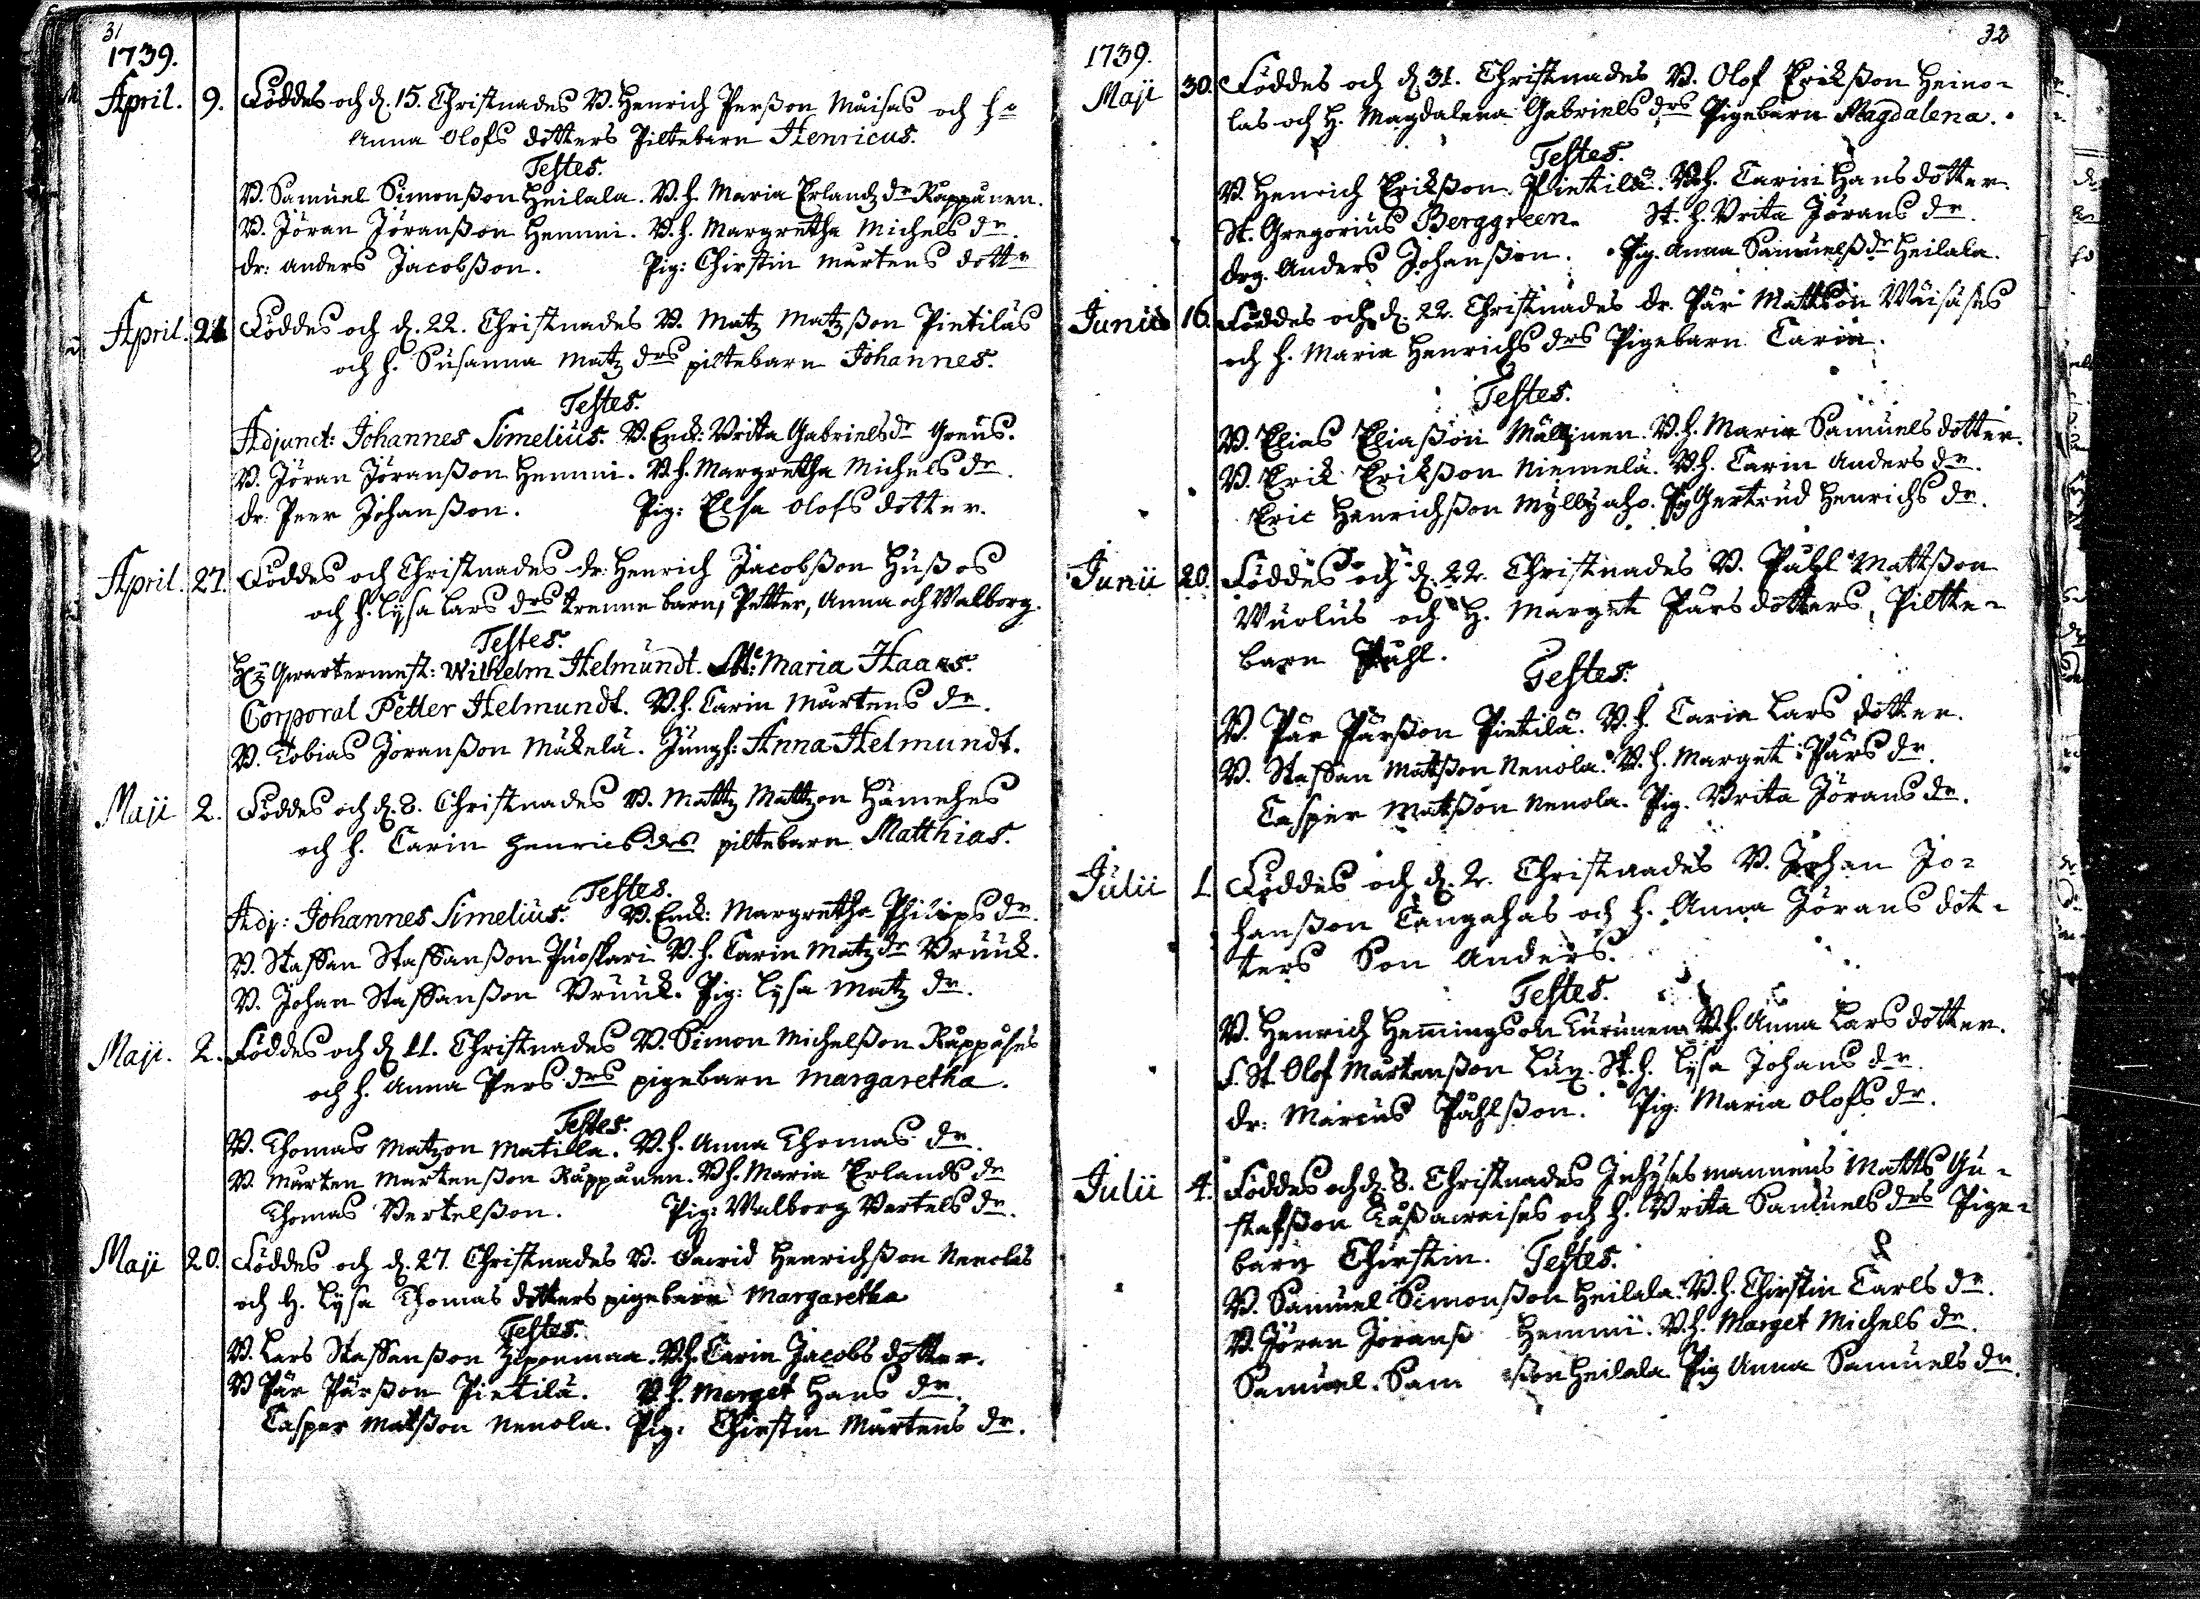 31
1739.
April. 9. Föddes och d. 15. Christnades V. Henrich Perßon Maisas och h:
Anna Olofs dotters Piltebarn Henricus.
Testes.
V. Samuel Simonßon Heilala. V. h. Maria Erlandz dr Rappanen.
V. Jöran Jöranßon Hemmi. V. h. Margretha Michels dr.
dr: Anders Jacobßon. Pig: Chirstin Mårtens dottr
April. 21 Föddes och d. 22. Christnades V. Matz Matzßon Pietiläs
och h. Susanna Matz drs piltebarn Johannes.
Testes.
Adjunct: Johannes Simelius. V. Enck: Vrita Gabriels dr Greus.
V. Jöran Jöranßon Hemmi. V. h. Margretha Michels dr.
dr. Peer Johanßon. Pig: Elsa Olofs dotter.
April. 27. Föddes och Christnades dr. Henrich Jacobßon Hußos
och h. Lysa Lars drs trenne barn, Petter, Anna och Walborg.
Testes.
Qwartermest: Wilhelm Helmundt. Maria Haaks.
Corporal Petter Helmundt. V. h. Carin Mårtens dr.
V. Tobias Joranßon Mäkelä. Jungf: Anna Helmundt.
Maji 2. Föddes och d. 8. Christnades V. Mattz Mattzon Hämehes
och h. Carin Henrics drs piltebarn Matthias.
Testes.
Adj: Johannes Simelius. V. Enck: Margretha Philips dr.
V. Staffan Staffanßon Puoskari V. h. Carin Matz dr Vruuk.
V. Johan Staffanßon Vruuk. Pig: Lysa Matz dr.
Maji. 2. Föddes och d. 11. Christnades V. Simon Michelßon Rappases
och h. Anna Pers drs pigebarn Margaretha.
Testes.
V. Thomas Matzon Matilla. V. h. Anna Thomas dr.
V. Mårten Mårtenßon Rappanen. V. h. Maria Erlands dr
Thomas Bertelßon. Pig: Walborg Bertels dr.
Maji 20. Föddes och d. 27. Christnades V. David Henrichßon Nenolas
och H. Lysa Thomas dotters pigebarn Margaretha
Testes.
V. Lars Staffanßon V. h. Carin Jacobs dotter.
V Pär Pärßon Pietilä. V. h. Marget Hans dr.
Casper Matßon Nenola. Pig: Chirstin Mårtens dr.
32
1739.
Maji 30. Föddes och d. 31. Christnades V. Olof Erikßon Heino-
las och H. Magdalena Gabriels drs Pigebarn Magdalena.
Testes.
V. Henrich Erikßon Pietilä. V. h. Carin Hans dotter.
St. Gregorius Berggreen. St. h. Vrita Jörans dr.
drg. Anders Johanßon. Pig. Anna Samuelß dr Heilala.
Junii 16. Föddes och d. 22. Christnades dr. Pär Mattßon Wäisäses
och h. Maria Henrichs drs Pigebarn Carin.
Testes.
V. Elias Eliaßon Mälkinen. V. h. Maria Samuels dotter.
V. Erik Erikßon Niemelä. V. h. Carin Anders dr.
Eric Henrichßon Myllyaho. Pig Gertrud Henrichs dr.
Junii 20. Föddes och d. 22. Christnades V. Påhl Mattßon
Wuolus och H. Marget Pärs dotters, Piltte-
barn Påhl.
Testes.
V. Pär Pärßon Pietilä. V. h. Carin Lars dotter.
V. Staffan Matßon Nenola. V. h. Marget Pärs dr.
Casper Matßon Nenola. Pig. Vrita Jörans dr.
Julii 1 Föddes och d. 2. Christnades V. Johan Jo-
hanßon Cangahas och h. Anna Jörans dot-
ters Son Anders.
Testes.
V. Henrich Hemmingson V. h. Anna Lars dotter.
St. Olof Mårtenßon St. h. Lysa Johans dr
dr: Marcus Påhlßon. Pig: Maria Olofs dr.
Julii 4. Föddes och d. 8. Christnades Inhyses mannens Matts Gu-
stafßon och h. Vrita Samuels drs Pige-
barn Chirstin. Testes.
V. Samuel Simonßon Heilala. V. h. Chirstin Carls dr.
V. Jöran Jöranß Hemmi. V. h. Marget Michels dr.
Samuel Sam ßon Heilala Pig Anna Samuels dr.